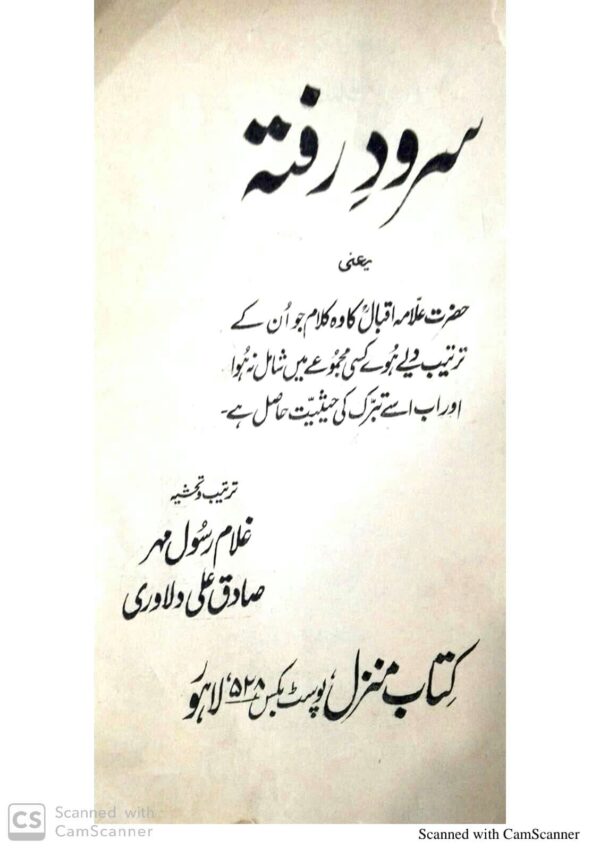 سرودِ رفتہ
یعنی
حضرت علّامہ اقبالؒ کا وہ کلام جو اُن کے
ترتیب دیے ہوے کسی مجموعے میں شامل نہ ہُوا
اور اب اسے تبرّک کی حیثیّت حاصل ہے۔
ترتیب و تحشیہ
غلام رسُول مہر
صادق علی دلاوری
کتاب منزل، پوسٹ بکس ۵۲۸، لاہور
CS Scanned with
CamScanner
Scanned with CamScanner